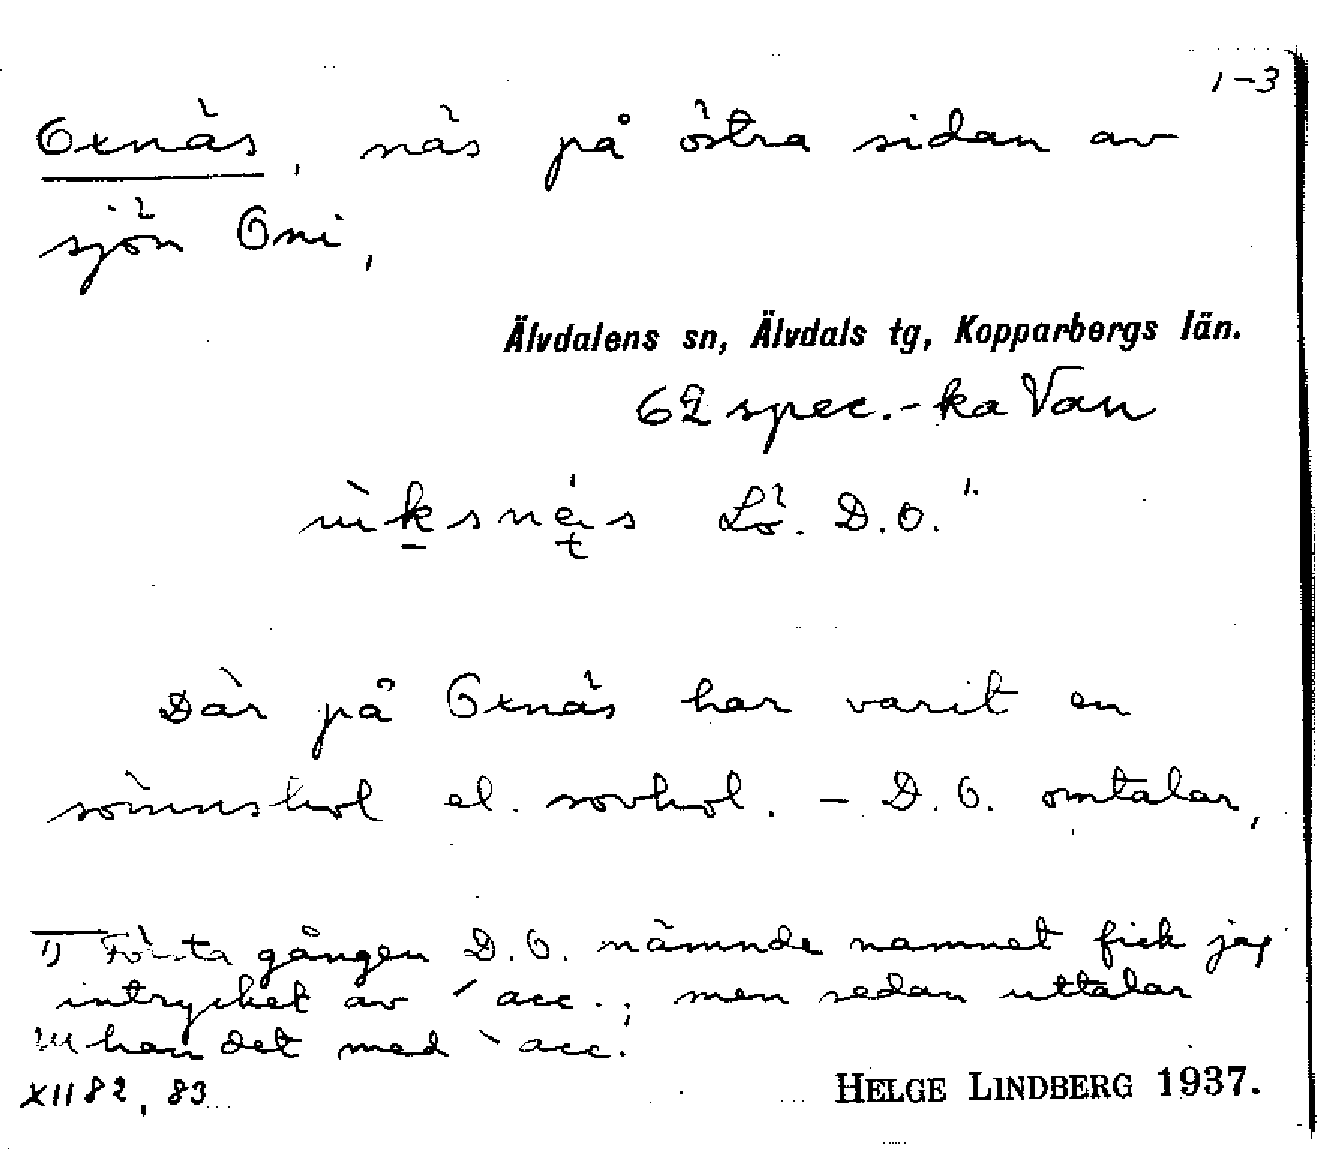 1-3
Oxnäs, näs på östra sidan av
sjön Oni,
Älvdalens sn, Älvdals tg, Kopparbergs län.
62 spec.-ka Van
Lö. D.O. 1.
Där på Oxnäs har varit en
sömnshol el. sovhol. - D.O. omtalar,
1) Första gången D.O. nämnde namnet fick jag
intrycket av ´ acc.; men sedan uttalar
han det med ` acc.
XII 82, 83
HELGE LINDBERG 1937.